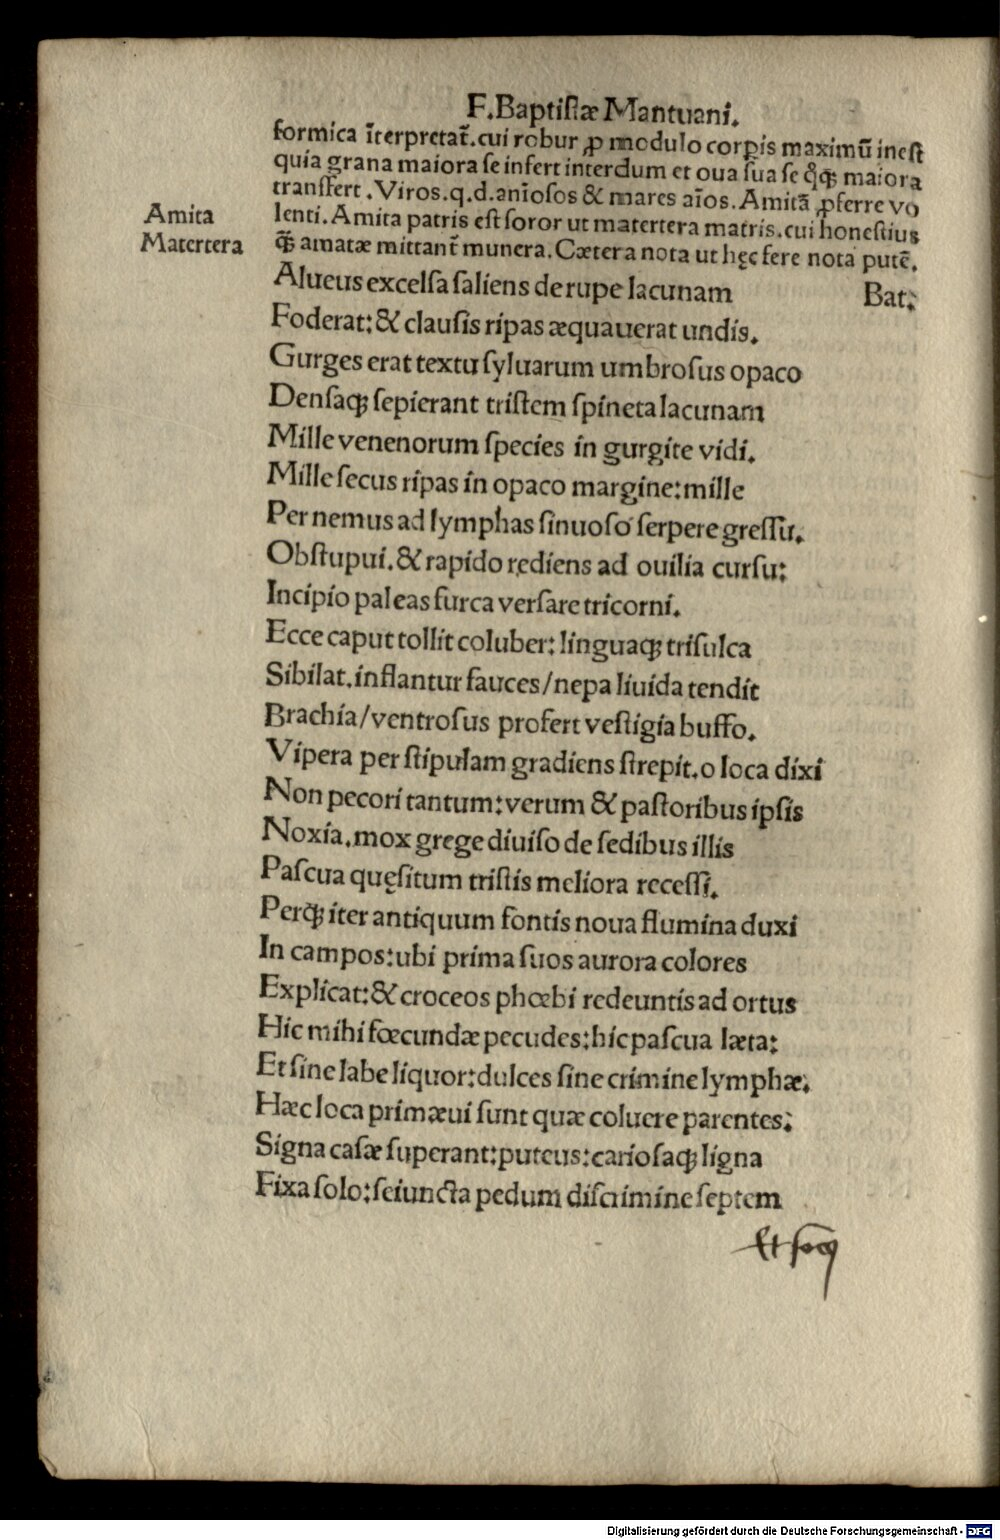 F.Baptistæ Mantuani.
formica ĩterpretat̃.cui robur ꝓ modulo corꝑis maximũ inest
quia grana maiora se infert interdum et oua sua se qq̃ꝫ maiora
transfert.Viros.q.d.anĩosos & mares aĩos.Amitã ꝓferre vo
Amita
lenti.Amita patris est soror ut matertera matris.cui honestius
Matertera
q̃ꝫ amatæ mittant̃ munera.Cætera nota ut hęc fere nota putẽ.
Alueus excelsa saliens de rupe lacunam Bat:
Foderat:& clausis ripas æquauerat undis.
Gurges erat textu syluarum umbrosus opaco
Densaqꝫ sepierant tristem spineta lacunam
Mille venenorum species in gurgite vidi.
Mille secus ripas in opaco margine:mille
Per nemus ad lymphas sinuoso serpere gressu.
Obstupui.& rapido rediens ad ouilia cursu:
Incipio paleas furca versare tricorni.
Ecce caput tollit coluber:linguaqꝫ trisulca
Sibilat.inflantur fauces/nepa liuida tendit
Brachia/ventrosus profert vestigia buffo.
Vipera per stipulam gradiens strepit.o loca dixi
Non pecori tantum:verum & pastoribus ipsis
Noxia.mox grege diuiso de sedibus illis
Pascua quęsitum tristis meliora recessi.
Perq̃ꝫ iter antiquum fontis noua flumina duxi
In campos:ubi prima suos aurora colores
Explicat:& croceos phœbi redeuntis ad ortus
Hic mihi fœcundæ pecudes:hic pascua læta:
Et sine labe liquor:dulces sine crimine lymphæ.
Hæc loca primæui sunt quæ coluere parentes:
Signa casæ superant:puteus:cariosaqꝫ ligna
Fixa solo:seiuncta pedum discrimine septem
Et seqꝫ
Digitalisierung gefördert durch die Deutsche Forschungsgemeinschaft - DFG